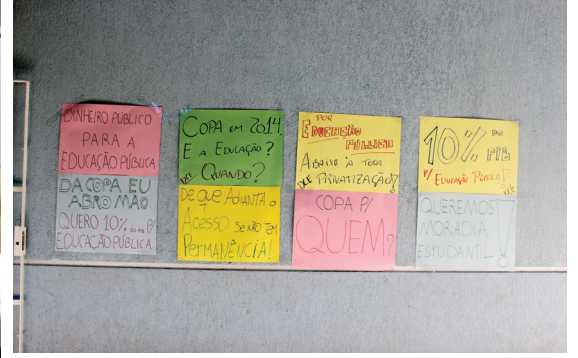 DINHEIRO PUBLICO
PARA A
EDUCAÇÃO PÚBLICA
DA COPA EU
ABRO MÃO
QUERO 10% do PIB P/
EDUCAÇÃO PÚBLICA
COPA EM 2014.
E A EDUCAÇÃO?
DCE QUANDO?
DE QUE ADIANTA O
ACESSO SE NÃO TEM
PERMANÊNCIA!
POR
EDUCAÇÃO
PÚBLICA
ABAIXO À TODA
DCE PRIVATIZAÇÃO!
COPA P/
QUEM?
10% DO PIB
P/ EDUCAÇÃO PÚBLICA!
DCE
QUEREMOS
MORADIA
ESTUDANTIL!